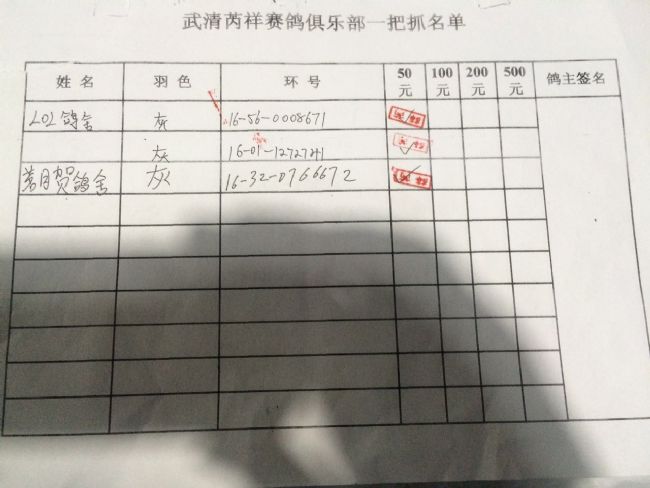 武清芮祥赛鸽俱乐部一把抓名单
姓名 羽色 环号 50元 100元 200元 500元 鸽主签名
LOL鸽舍 灰 16-56-0008671
灰 16-01-1272741
贺鸽舍 灰 16-32-0766672